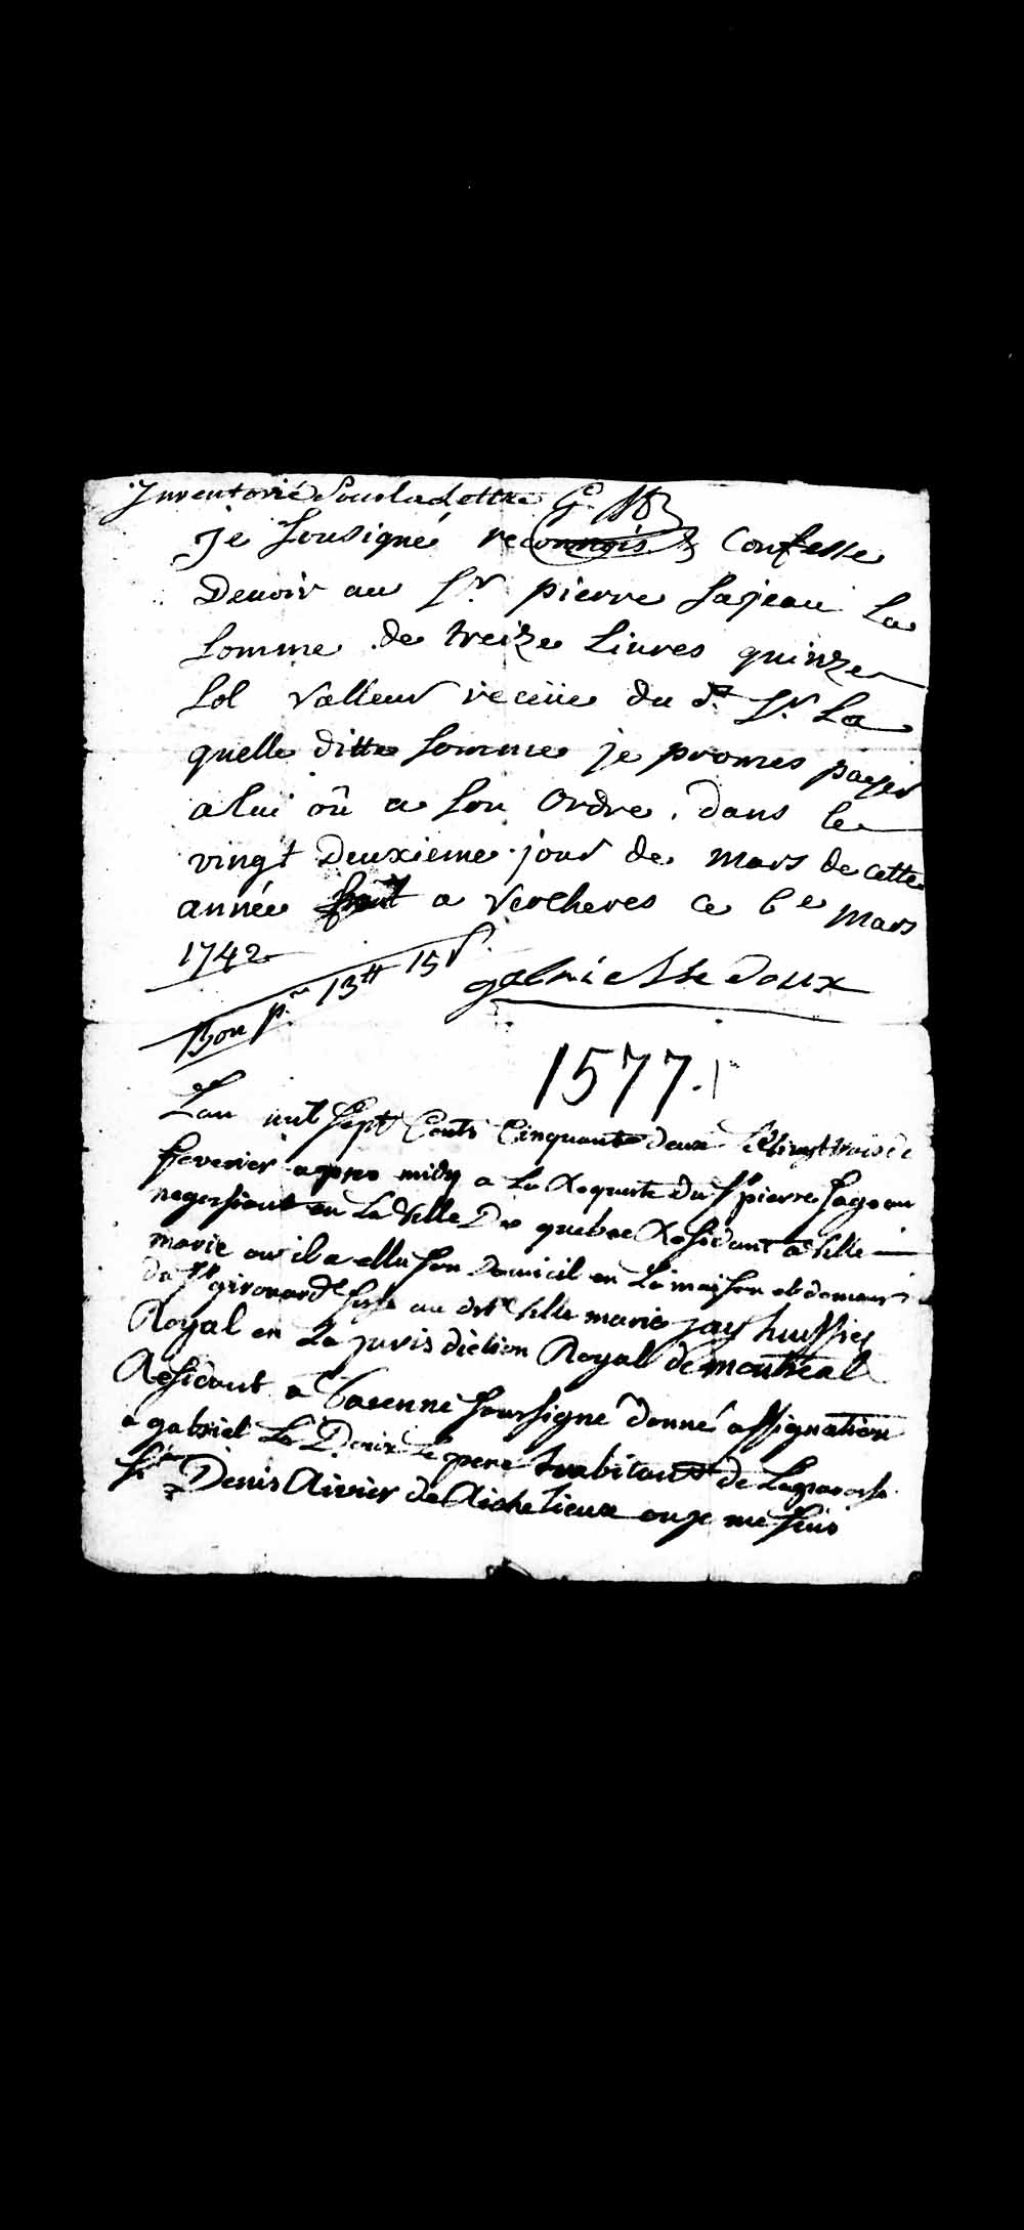 Inventorié Sous la Lettre G.
je Sousigné reconnois & Confesse
Devoir au Sr. pierre Sajeau La
Somme de treize Livres quinze
Sol valleur receüe du dt. Sr. La
quelle ditte Somme je promes payer
a lui oû a Son Ordre. Dans le
vingt Deuxieme jour de Mars de cette
année fait a Vercheres ce 6e Mars
1742
Bon pr. 13tt 15s
gabriel le doux
1577.
Lan mil Sept Cents Cinquante deux Le Vingt trois de
feverier apres midy a La Requete du Sr pierre Sageau
negossiant en La Ville De quebec Residant a Ville
marie ou il a ellu Son Domicil en La maison et demeure
du Sr girouard Sise au dit Ville marie jay huissier
Royal en La jurisdiction Royall de montreal
Residant a Varenne Soussigné donné assignation
a gabriel Le Doux Le pere habitant de La paroisse
St Denis Rivier de Richelieux ou je me Suis